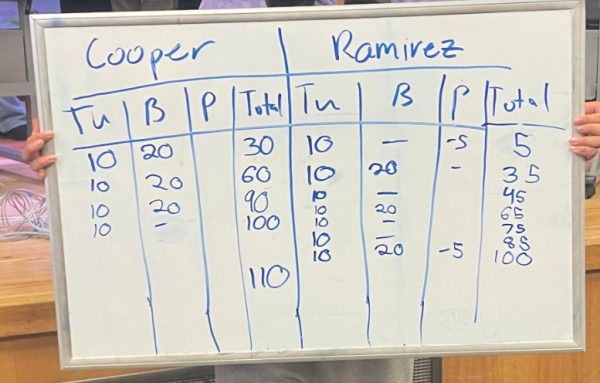 Cooper Ramirez
Tu B P Total Tu B P Total
10 20 30 10 — -5 5
10 20 60 10 20 - 35
10 20 90 10 — 45
10 - 100 10 20 65
10 — 75
10 85
10 20 -5 100
110